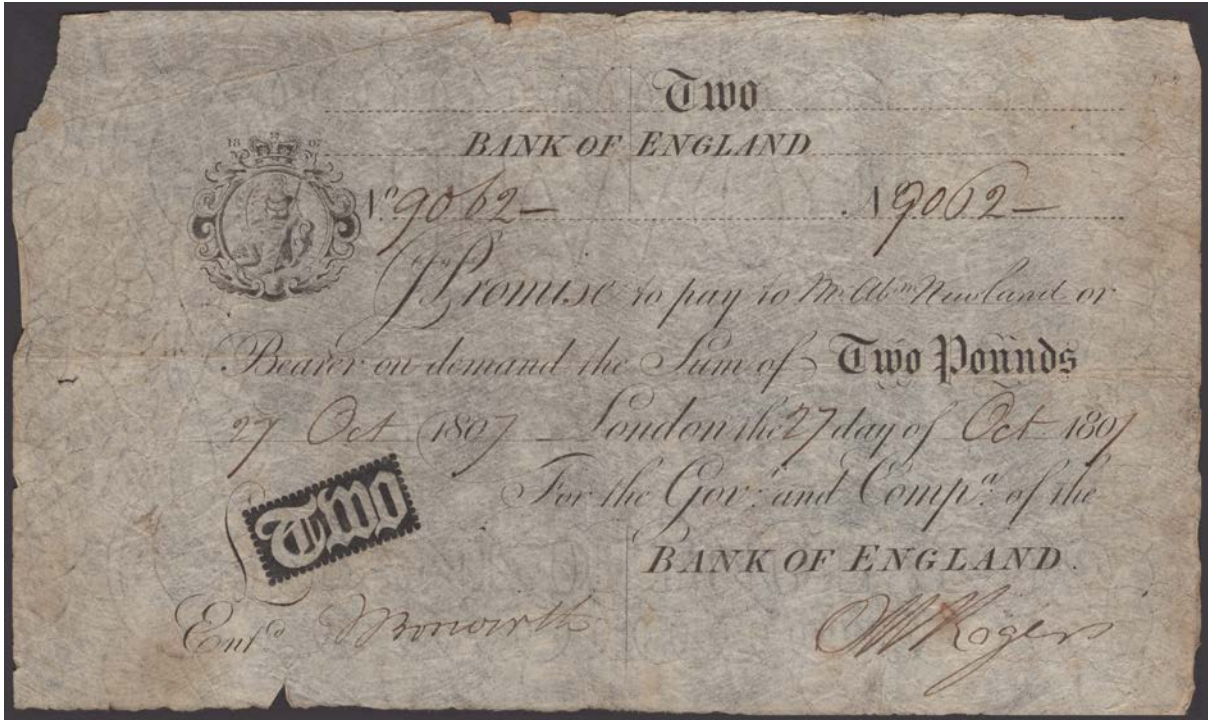 Two
BANK OF ENGLAND
18 07
No 9062— No 9062—
I Promise to pay to Mr. Abm Newland or
Bearer on demand the Sum of Two Pounds
27 Oct 1807 — London the 27 day of Oct 1807
For the Govr and Compa of the
Two
BANK OF ENGLAND.
Entd
Rogers